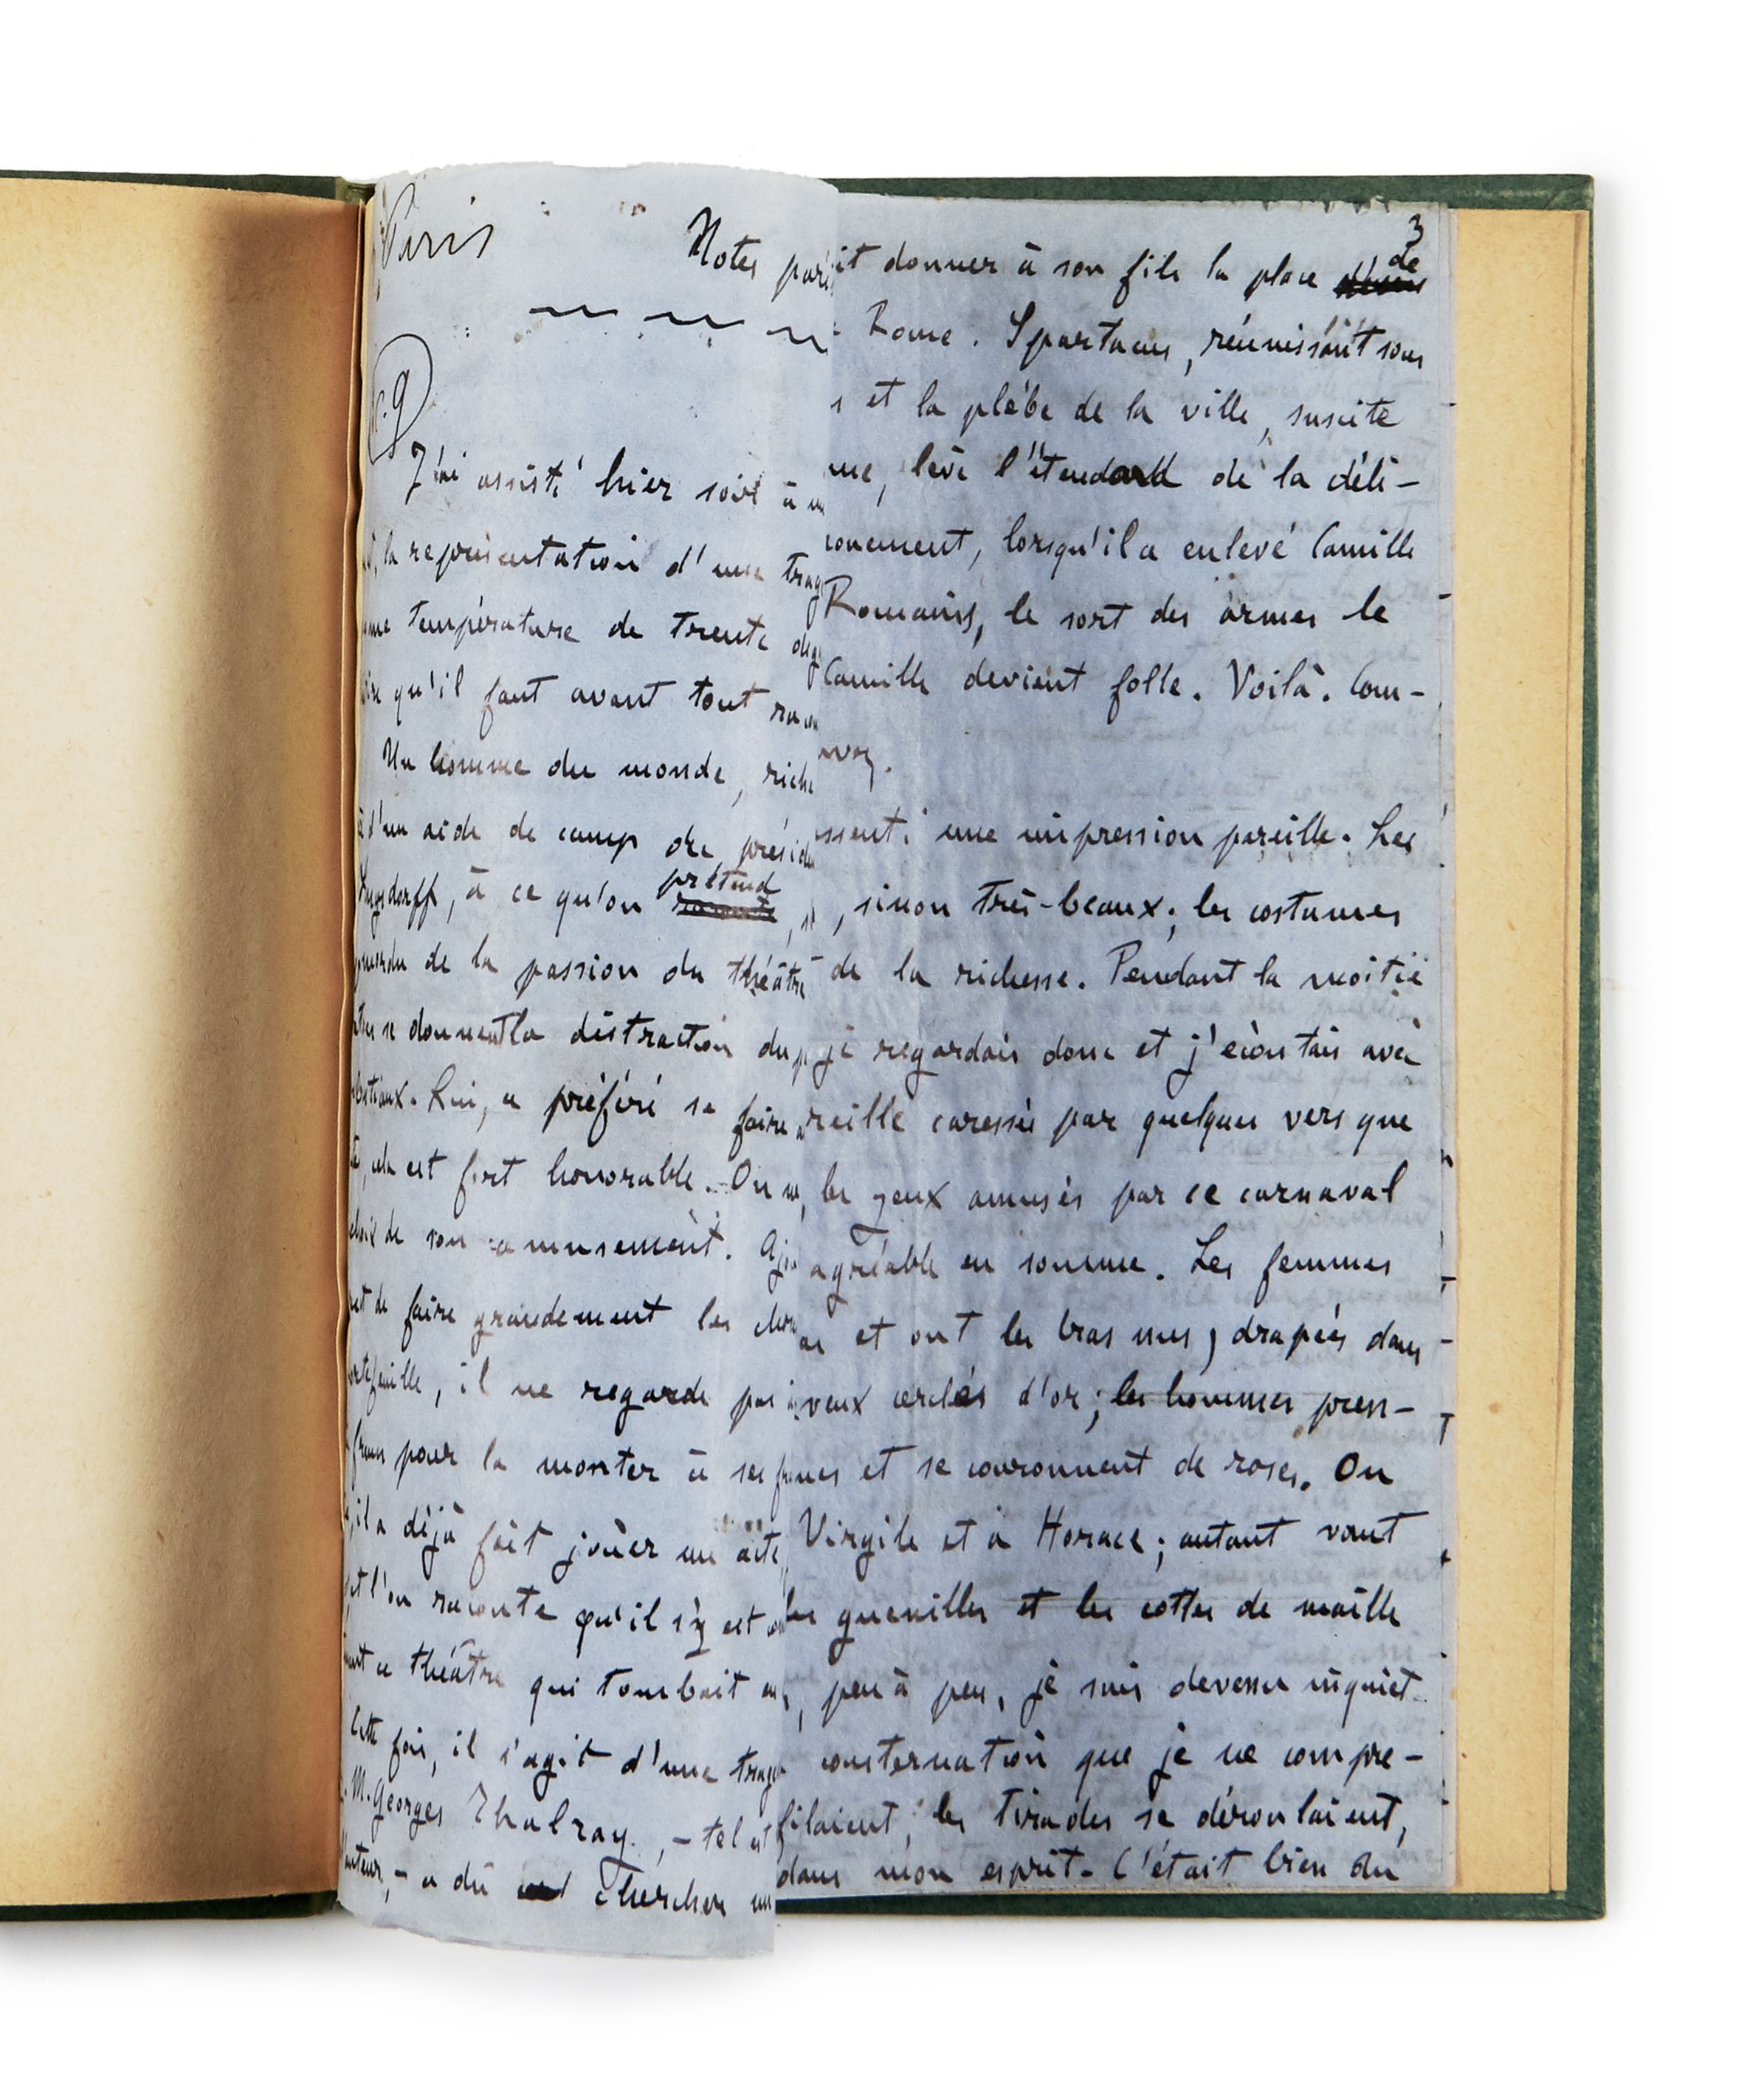 Paris
Notes pari
c.9
J'ai assisté hier soir à un
la représentation d'une trag
une température de trente deg
qu'il faut avant tout racon
Un homme du monde, riche
d'un aide de camp du présiden
Langsdorff, à ce qu'on prétend
mordu de la passion du théâtre
se donnent la distraction du
bestiaux. Lui, a préféré se faire
cela est fort honorable. On ne
choix de son amusement. Ajou
met de faire grandement les chos
portefeuille, il ne regarde pas à
pour la monter à ses frais
il a déjà fait jouer un acte,
et l'on raconte qu'il s'y est
ce théâtre qui tombait en
Cette fois, il s'agit d'une tragé
M. Georges Thalray, – tel est
l'auteur, – a dû chercher un
3
it donner à son fils la place de
Rome. Spartacus, réunissant sous
s et la plèbe de la ville, suscite
me, lève l'étendard de la déli-
onnement, lorsqu'il a enlevé Camille
Romains, le sort des armes le
Camille devient folle. Voilà. Com-
voy.
ssenti une impression pareille. Les
, sinon très-beaux; les costumes
de la richesse. Pendant la moitié
je regardais donc et j'écoutais avec
reille caressée par quelques vers que
, les yeux amusés par ce carnaval
agréable en somme. Les femmes
et ont les bras nus, drapées dans
veux cerclés d'or; les hommes pren-
nes et se couronnent de roses. On
Virgile et à Horace; autant vaut
les guenilles et les cottes de maille
, peu à peu, je suis devenu inquiet.
consternation que je ne compre-
filaient, les tirades se déroulaient,
dans mon esprit. C'était bien du